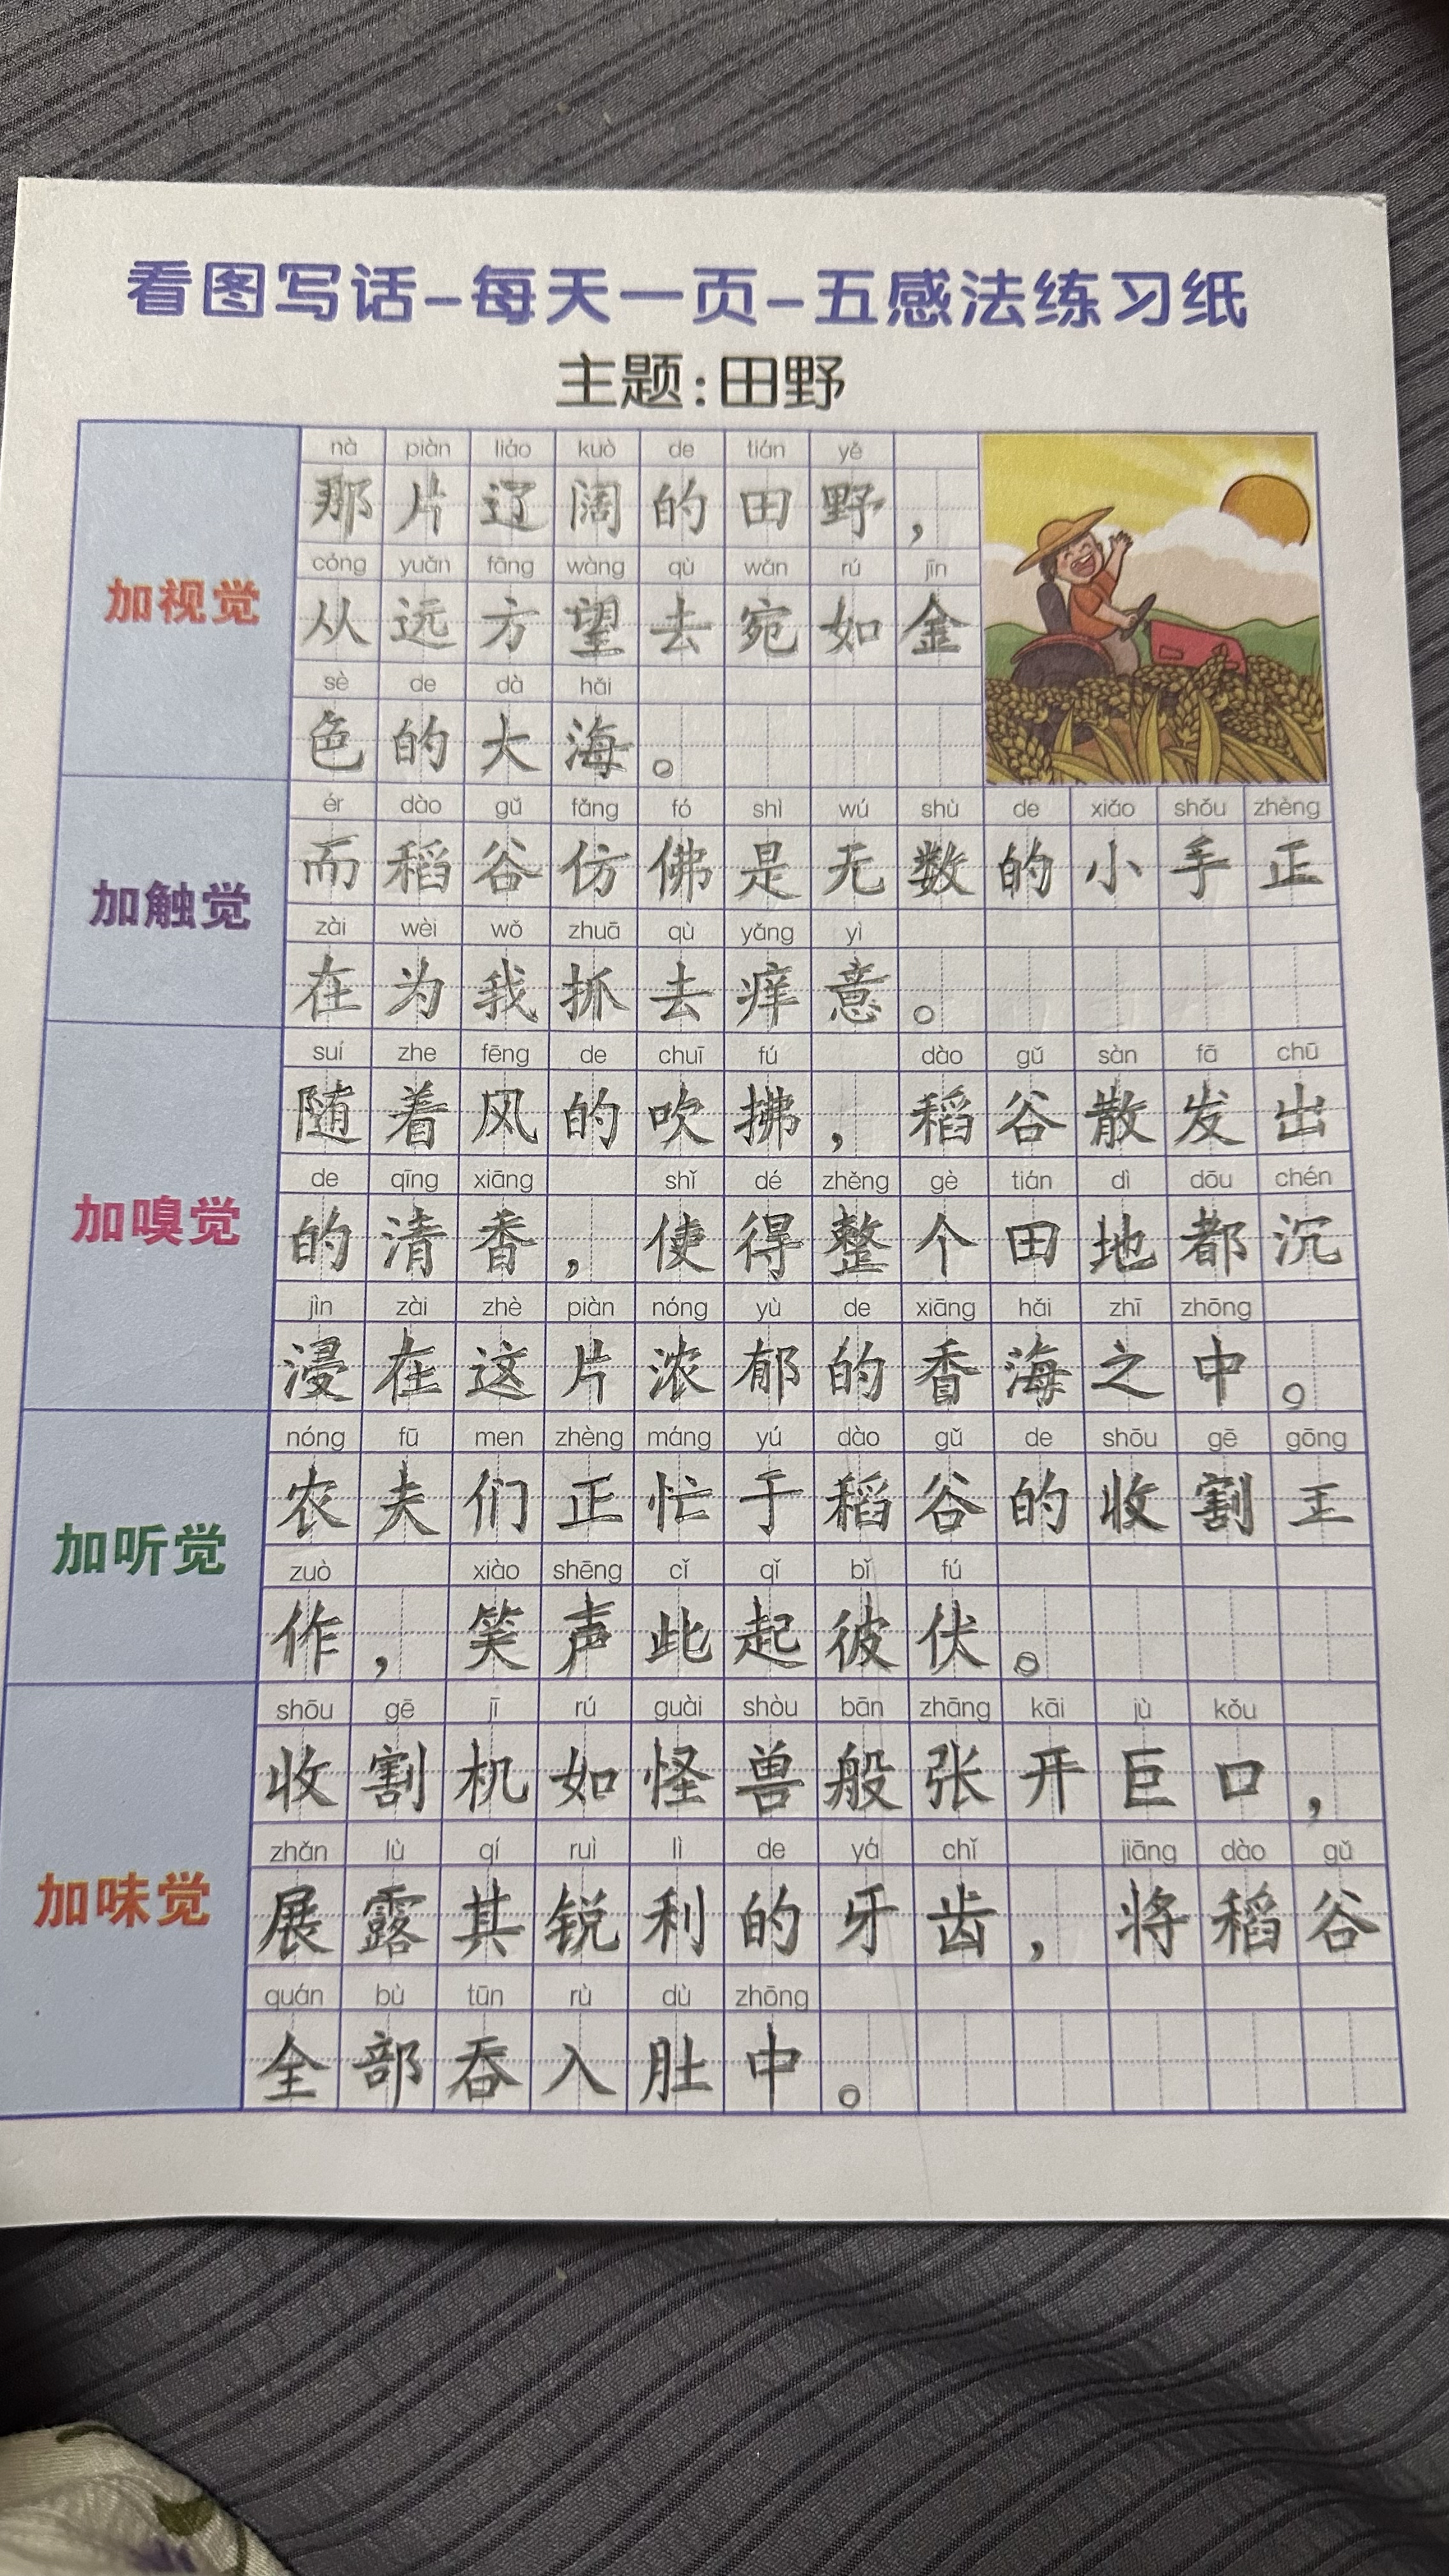 看图写话-每天一页-五感法练习纸
主题:田野
加视觉
nà piàn liáo kuò de tián yě
那片辽阔的田野，
cóng yuǎn fāng wàng qù wǎn rú jīn
从远方望去宛如金
sè de dà hǎi
色的大海。
加触觉
ér dào gǔ fǎng fó shì wú shù de xiǎo shǒu zhèng
而稻谷仿佛是无数的小手正
zài wèi wǒ zhuā qù yǎng yì
在为我抓去痒意。
加嗅觉
suí zhe fēng de chuī fú dào gǔ sàn fā chū
随着风的吹拂，稻谷散发出
de qīng xiāng shǐ dé zhěng gè tián dì dōu chén
的清香，使得整个田地都沉
jìn zài zhè piàn nóng yù de xiāng hǎi zhī zhōng
浸在这片浓郁的香海之中。
加听觉
nóng fū men zhèng máng yú dào gǔ de shōu gē gōng
农夫们正忙于稻谷的收割工
zuò xiào shēng cǐ qǐ bǐ fú
作，笑声此起彼伏。
加味觉
shōu gē jī rú guài shòu bān zhāng kāi jù kǒu
收割机如怪兽般张开巨口，
zhǎn lù qí ruì lì de yá chǐ jiāng dào gǔ
展露其锐利的牙齿，将稻谷
quán bù tūn rù dù zhōng
全部吞入肚中。